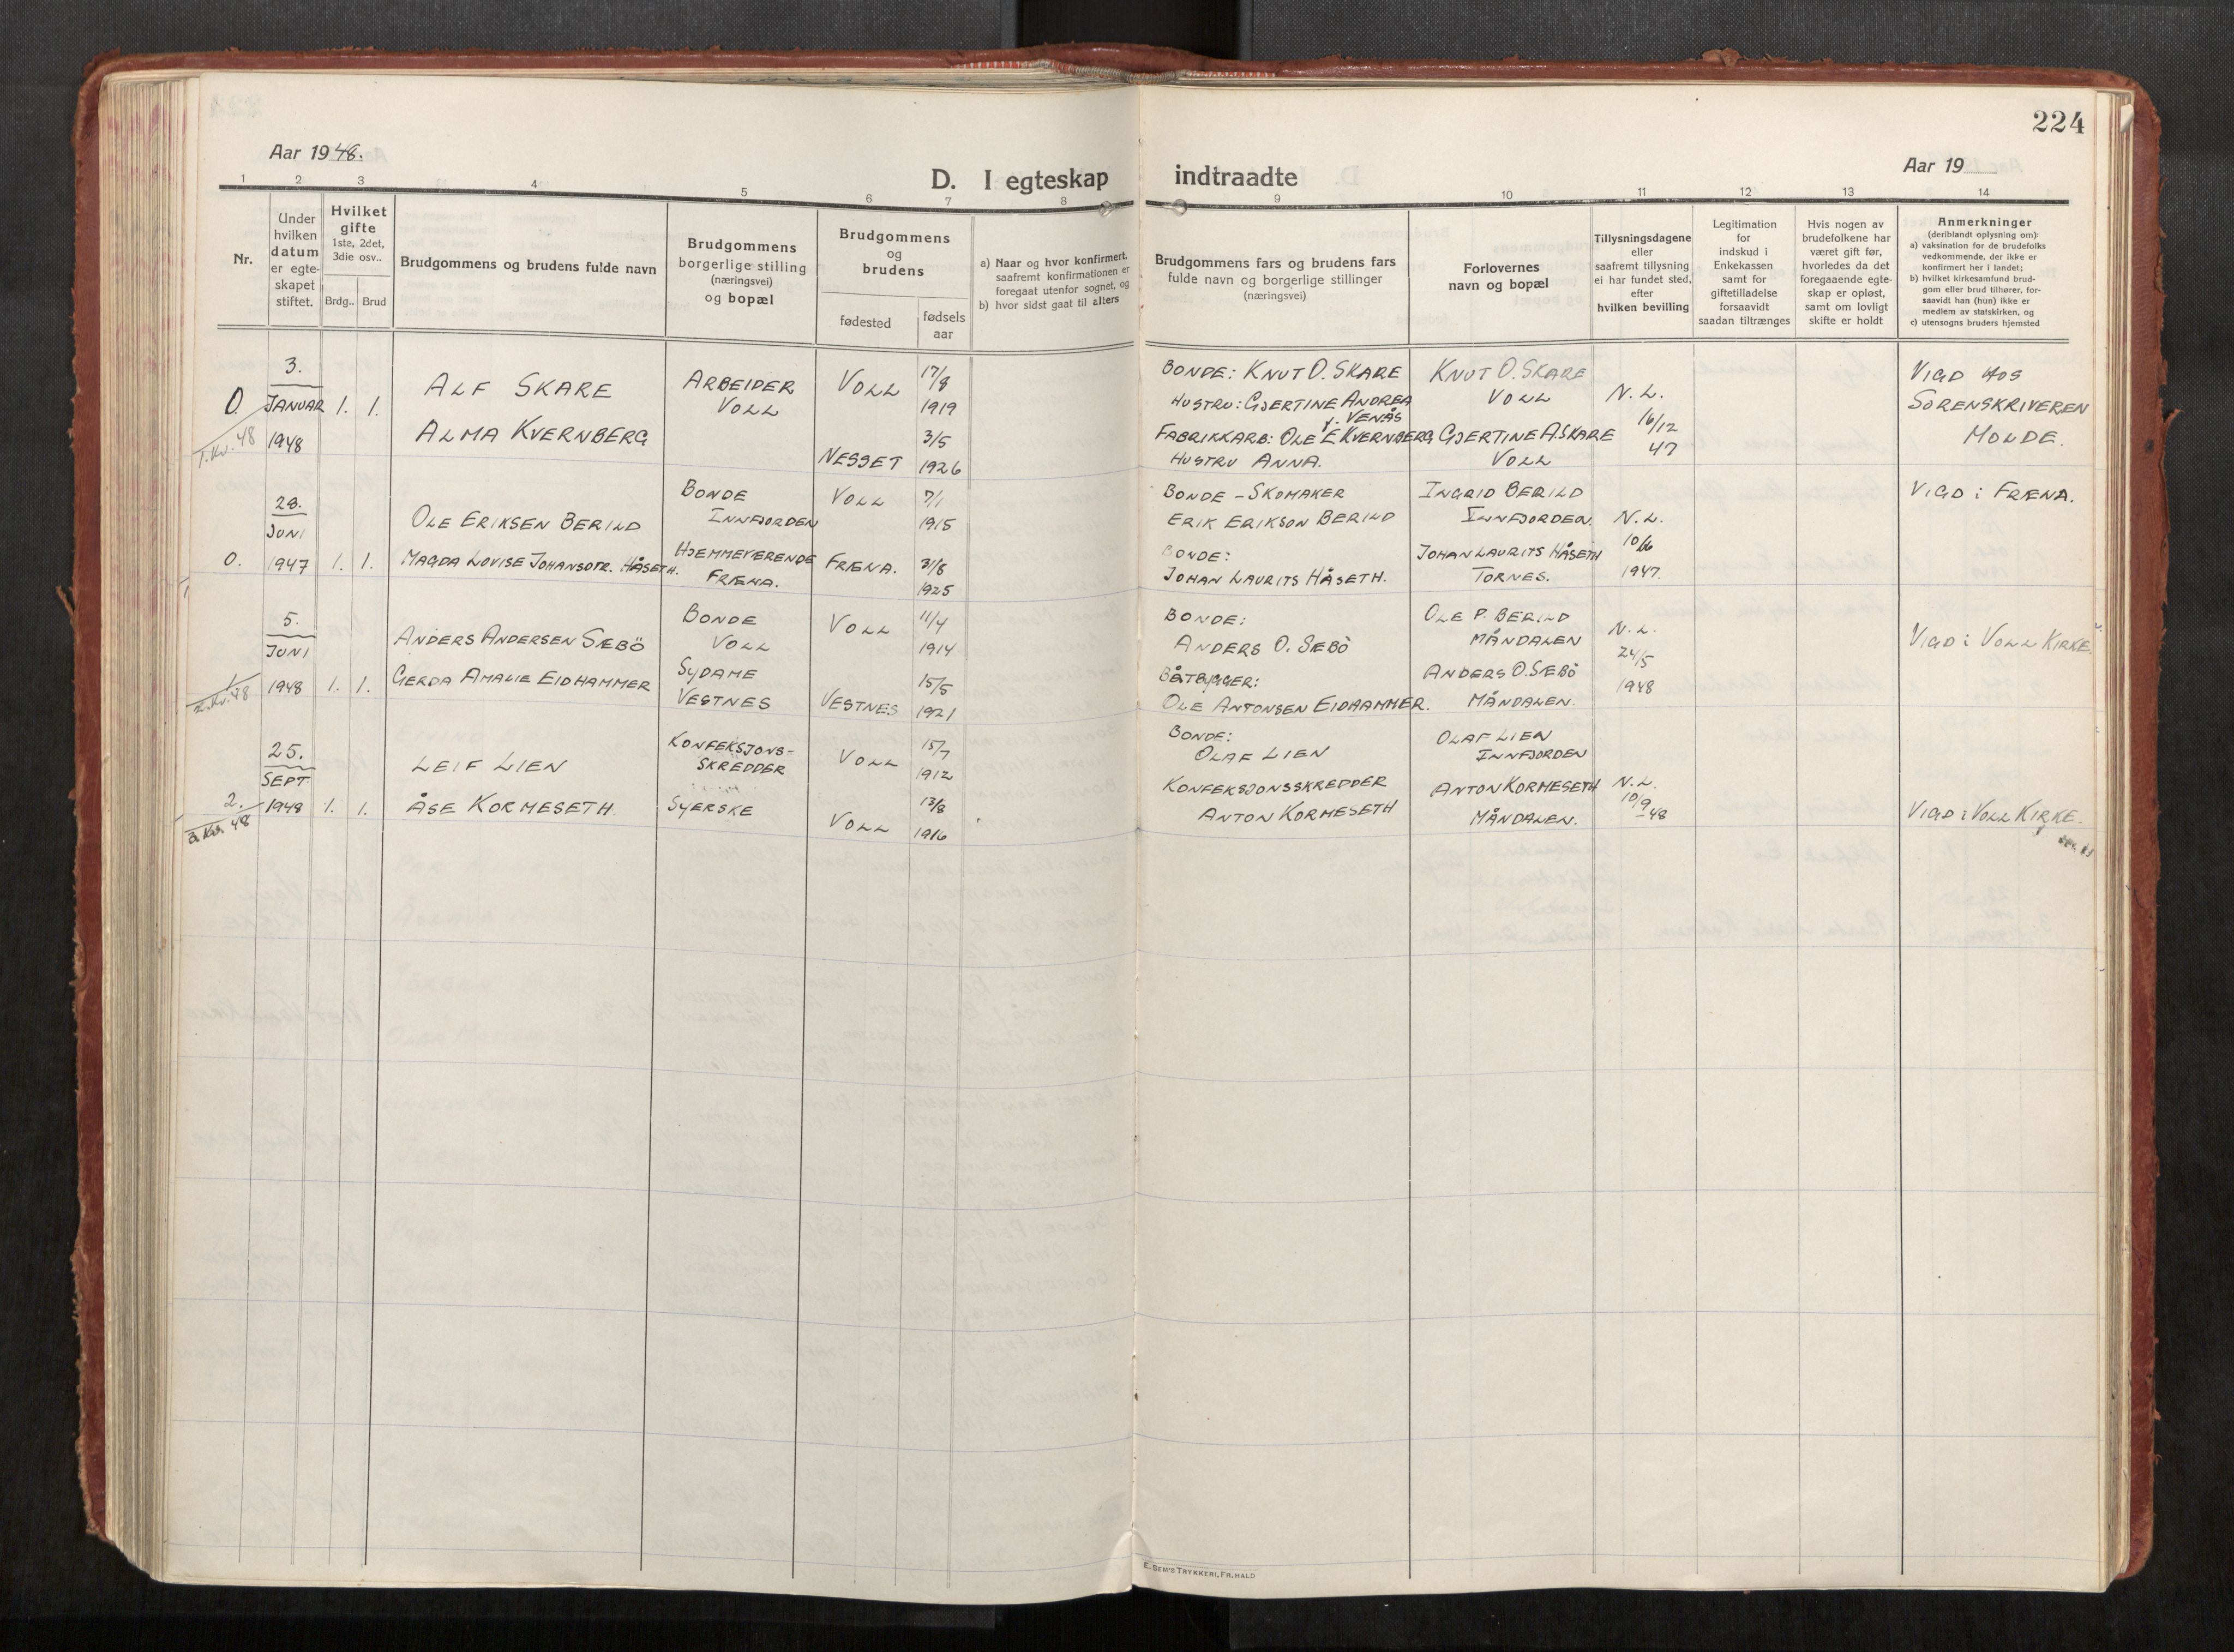 224
Aar 1948.
Aar 19
D. I egteskap indtraadte
1 2 3 4 5 6 7 8 9 10 11 12 13 14
Nr.
Under
hvilken
datum
er egte-
skapet
stiftet.
Hvilket
gifte
1ste, 2det,
3die osv..
Brdg.. Brud
Brudgommens og brudens fulde navn
Brudgommens
borgerlige stilling
(næringsvei)
og bopæl
Brudgommens
og
brudens
fødested
fødsels
aar
a) Naar og hvor konfirmert,
saafremt konfirmationen er
foregaat utenfor sognet, og
b) hvor sidst gaat til alters
Brudgommens fars og brudens fars
fulde navn og borgerlige stillinger
(næringsvei)
Forlovernes
navn og bopæl
Tillysningsdagene
eller
saafremt tillysning
ei har fundet sted,
efter
hvilken bevilling
Legitimation
for
indskud i
Enkekassen
samt for
giftetilladelse
forsaavidt
saadan tiltrænges
Hvis nogen av
brudefolkene har
været gift før,
hvorledes da det
foregaaende egte-
skap er opløst,
samt om lovligt
skifte er holdt
Anmerkninger
(deriblandt oplysning om):
a) vaksination for de brudefolks
vedkommende, der ikke er
konfirmert her i landet;
b) hvilket kirkesamfund brud-
gom eller brud tilhører, for-
saavidt han (hun) ikke er
medlem av statskirken, og
c) utensogns bruders hjemsted
0.
1. Kv. 48
3.
JANUAR
1948
1. 1.
ALF SKARE
ALMA KVERNBERG
ARBEIDER
VOLL
VOLL
NESSET
17/8
1919
3/5
1926
BONDE: KNUT O. SKARE
HUSTRU: GJERTINE ANDREA
f. VENÅS
FABRIKKARB: OLE E KVERNBERG
HUSTRU ANNA.
KNUT O. SKARE
VOLL
GJERTINE A. SKARE
VOLL
N. L.
16/12
47
VIGD HOS
SORENSKRIVEREN
MOLDE.
0.
28.
JUNI
1947
1. 1.
OLE ERIKSEN BERILD
MAGDA LOVISE JOHANSDTR. HÅSETH.
BONDE
INNFJORDEN
HJEMMEVERENDE
FRÆNA.
VOLL
FRÆNA.
7/1
1915
31/8
1925
BONDE - SKOMAKER
ERIK ERIKSON BERILD
BONDE:
JOHAN LAURITS HÅSETH.
INGRID BERILD
INNFJORDEN.
JOHAN LAURITS HÅSETH
TORNES.
N. L.
10/6
1947.
VIGD i FRÆNA.
1
2. Kv. 48
5.
JUNI
1948
1. 1.
ANDERS ANDERSEN SÆBÖ
GERDA AMALIE EIDHAMMER
BONDE
VOLL
SYDAME
VESTNES
VOLL
VESTNES
11/4
1914
15/5
1921
BONDE:
ANDERS O. SÆBÖ
BÅTBYGGER:
OLE ANTONSEN EIDHAMMER.
OLE P. BERILD
MÅNDALEN
ANDERS O. SÆBÖ
MÅNDALEN.
N. L.
24/5
1948
VIGD i VOLL KIRKE.
2.
3. Kv. 48
25.
SEPT
1948
1. 1.
LEIF LIEN
ÅSE KORMESETH.
KONFEKSJONS-
SKREDDER
SYERSKE
VOLL
VOLL
15/7
1912
13/8
1916
BONDE:
OLAF LIEN
KONFEKSJONSSKREDDER
ANTON KORMESETH
OLAF LIEN
INNFJORDEN
ANTON KORMESETH
MÅNDALEN.
N. L.
10/9
48
VIGD i VOLL KIRKE.
E. SEM'S TRYKKERI, FR.HALD